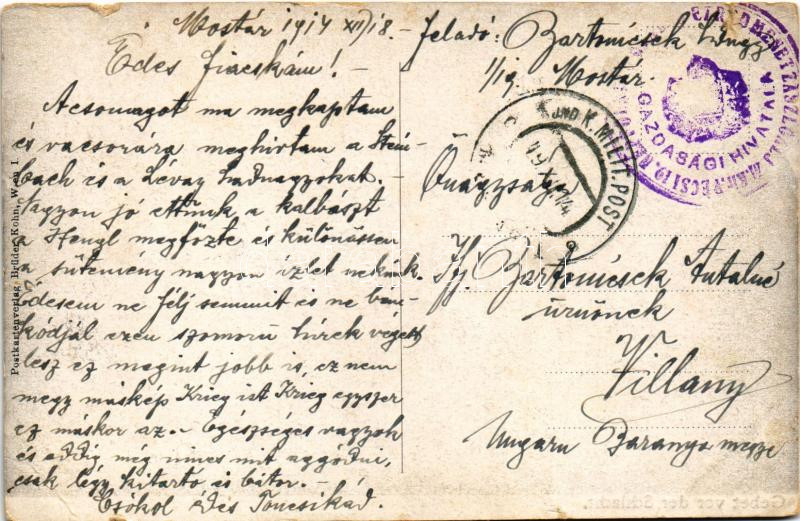 Mostár 1914 XII/18 –
Édes fiacskám! –
A csomagot ma megkaptam
és vacsorára meghivtam a Stein-
bach és a Lévay hadnagyokat. –
Nagyon jó ettünk a kalbászt
a Hengl megfőzte és különössen
a sütemény nagyon izlet nekünk.
édesem ne félj semmit és ne ban-
kódjál ezen szomorú hirek végett
lesz ez megint jobb is, ez nem
megy máskép Krieg ist Krieg egyszer
ez máskor az. – Egészséges vagyok
és addig még nincs mit aggódni,
csak légy kitartó és bátor. –
Csókol édes Toncsikád.
Feladó: Bartonicsek
Mostár.
K. UND K. MILIT. POST
GAZDASÁGI HIVATALA
Önagysága
Ifj. Bartonicsek Antalné
úrnőnek
Villany
Ungarn Baranya megye
Postkartenverlag Brüder Kohn, Wien I
Gebet vor der Schlacht.